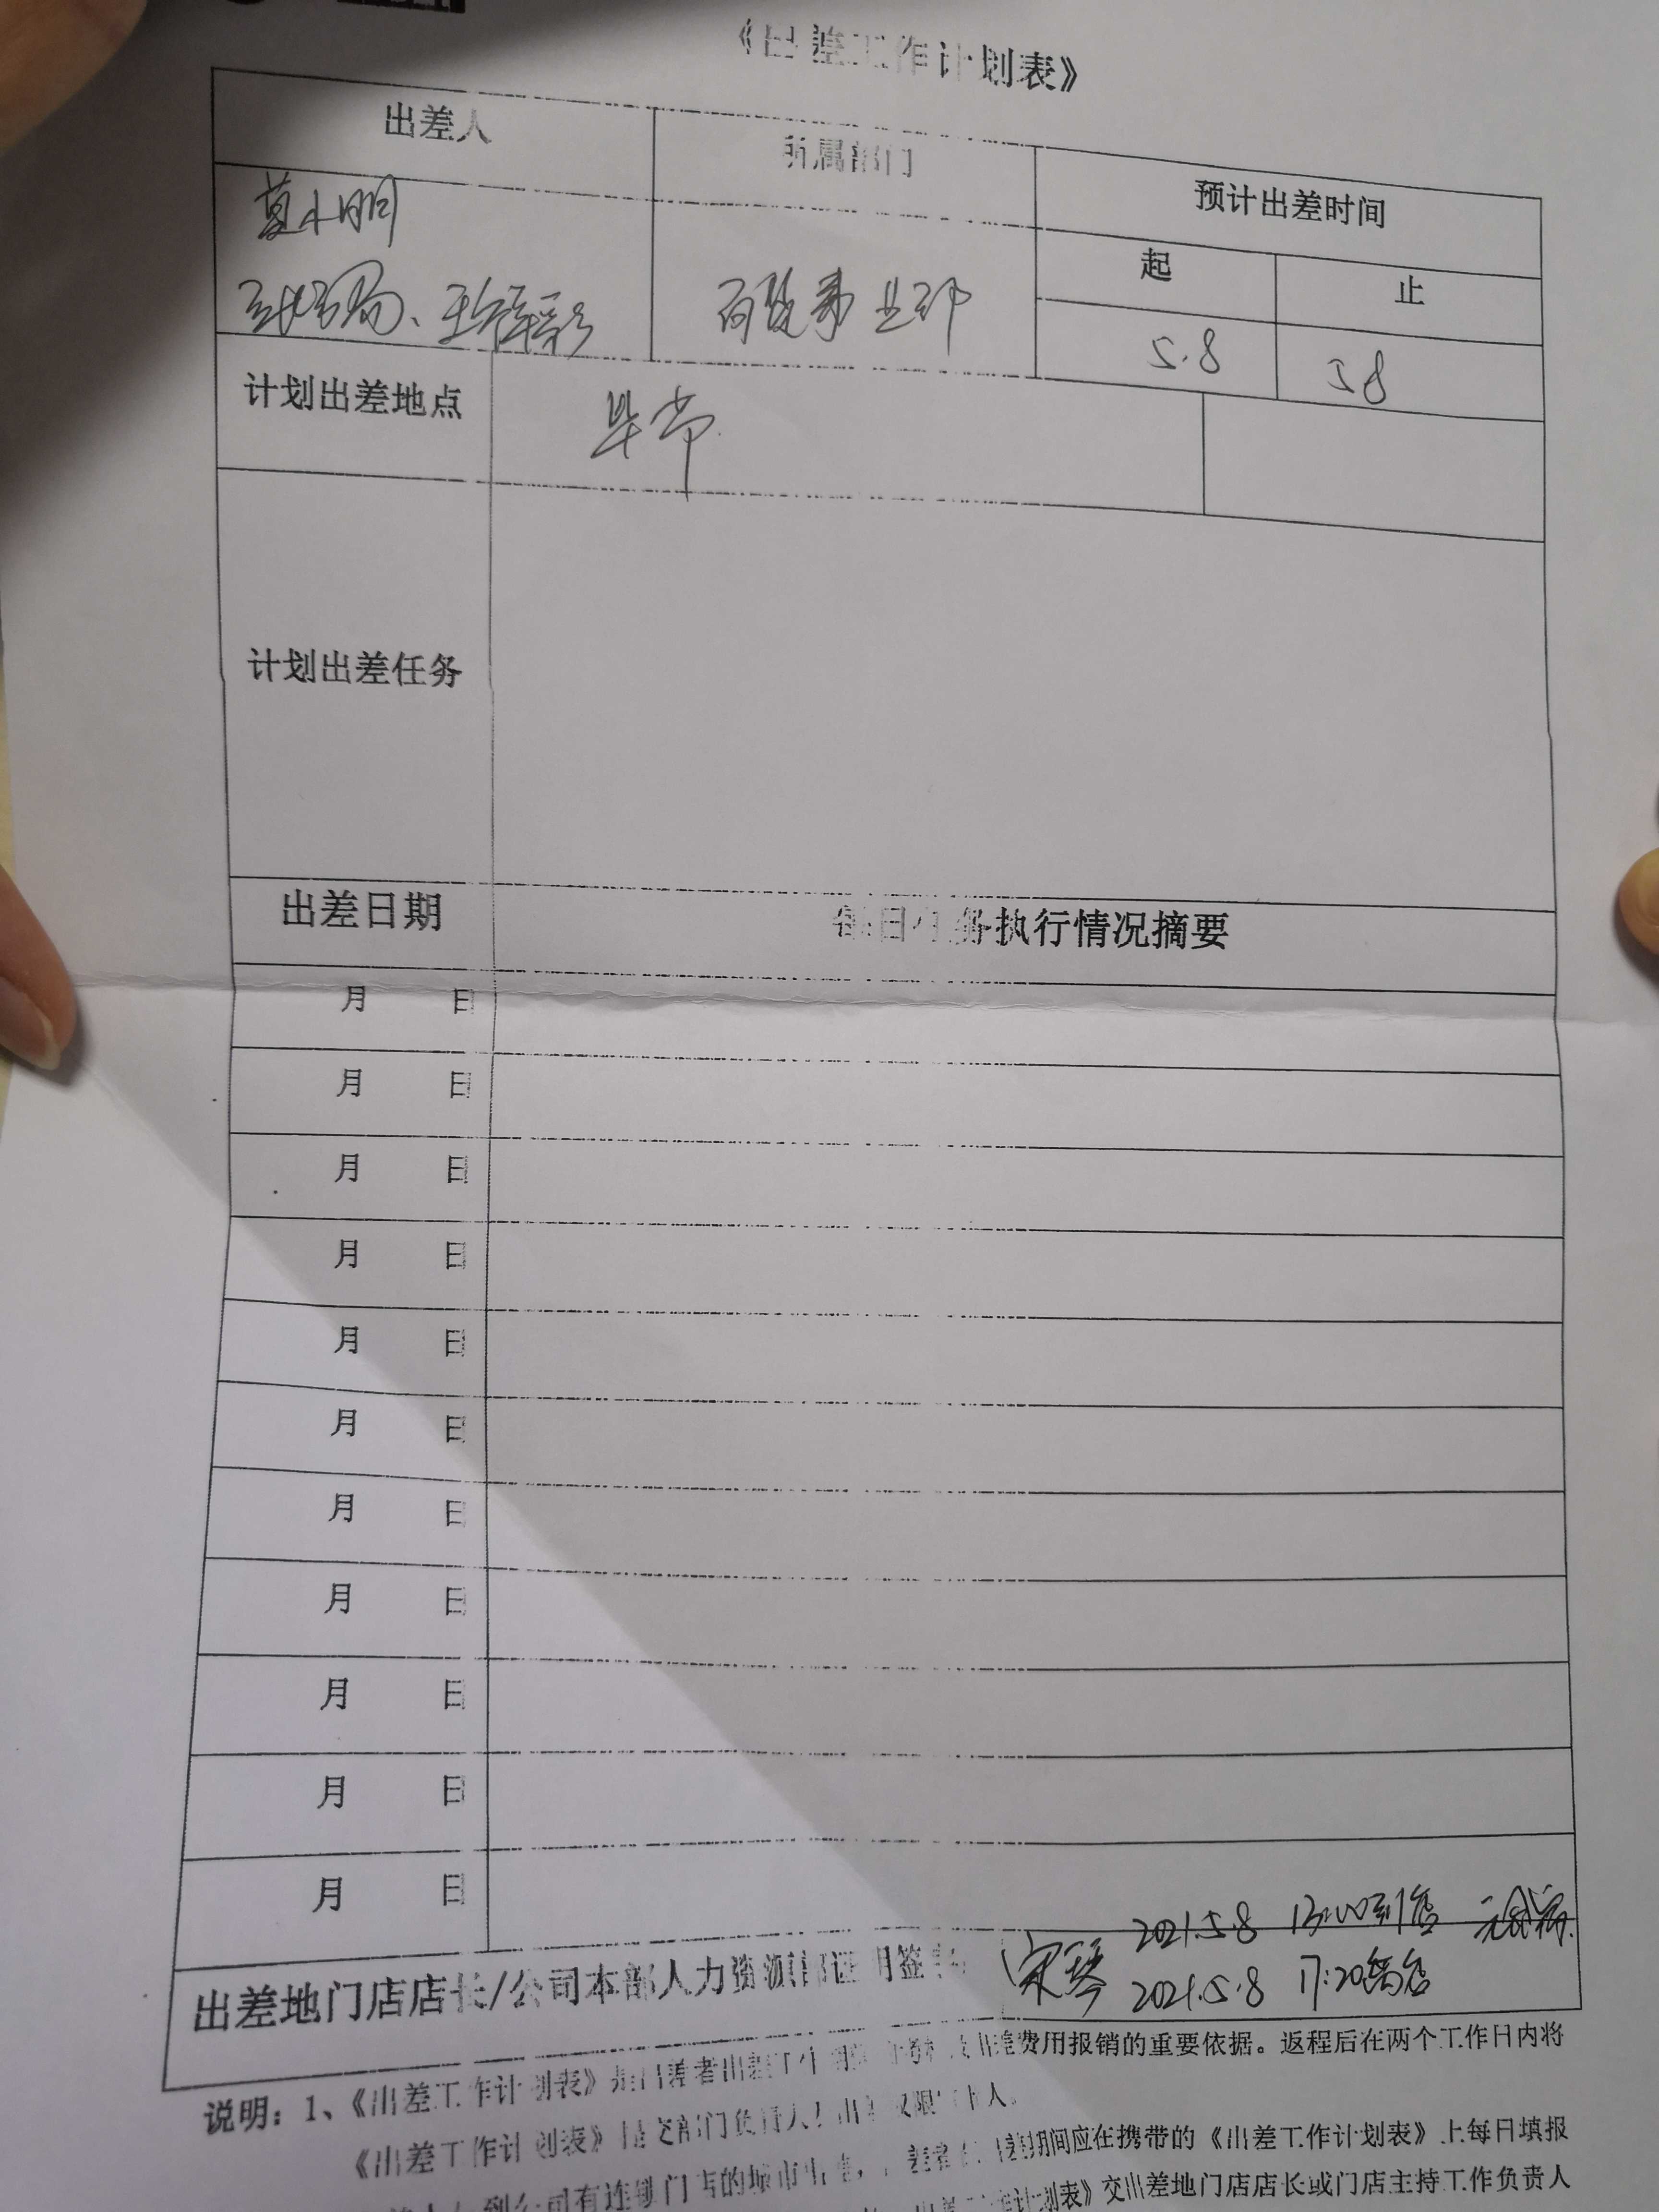 《出差工作计划表》
出差人 所属部门 预计出差时间
起 止
莫小明
事业部
5.8 5.8
计划出差地点 毕节
计划出差任务
出差日期 每日任务执行情况摘要
月 日
月 日
月 日
月 日
月 日
月 日
月 日
月 日
月 日
月 日
月 日
2021.5.8 13:00到店
出差地门店店长/公司本部人力资源部证明签字 宋琴 2021.5.8 17:20离店
说明：1、《出差工作计划表》是出差者出差工作 费用报销的重要依据。返程后在两个工作日内将
《出差工作计划表》 部门负责人 权限 人。
到公司有连锁门店的城市出差， 期间应在携带的《出差工作计划表》上每日填报
《出差工作计划表》交出差地门店店长或门店主持工作负责人